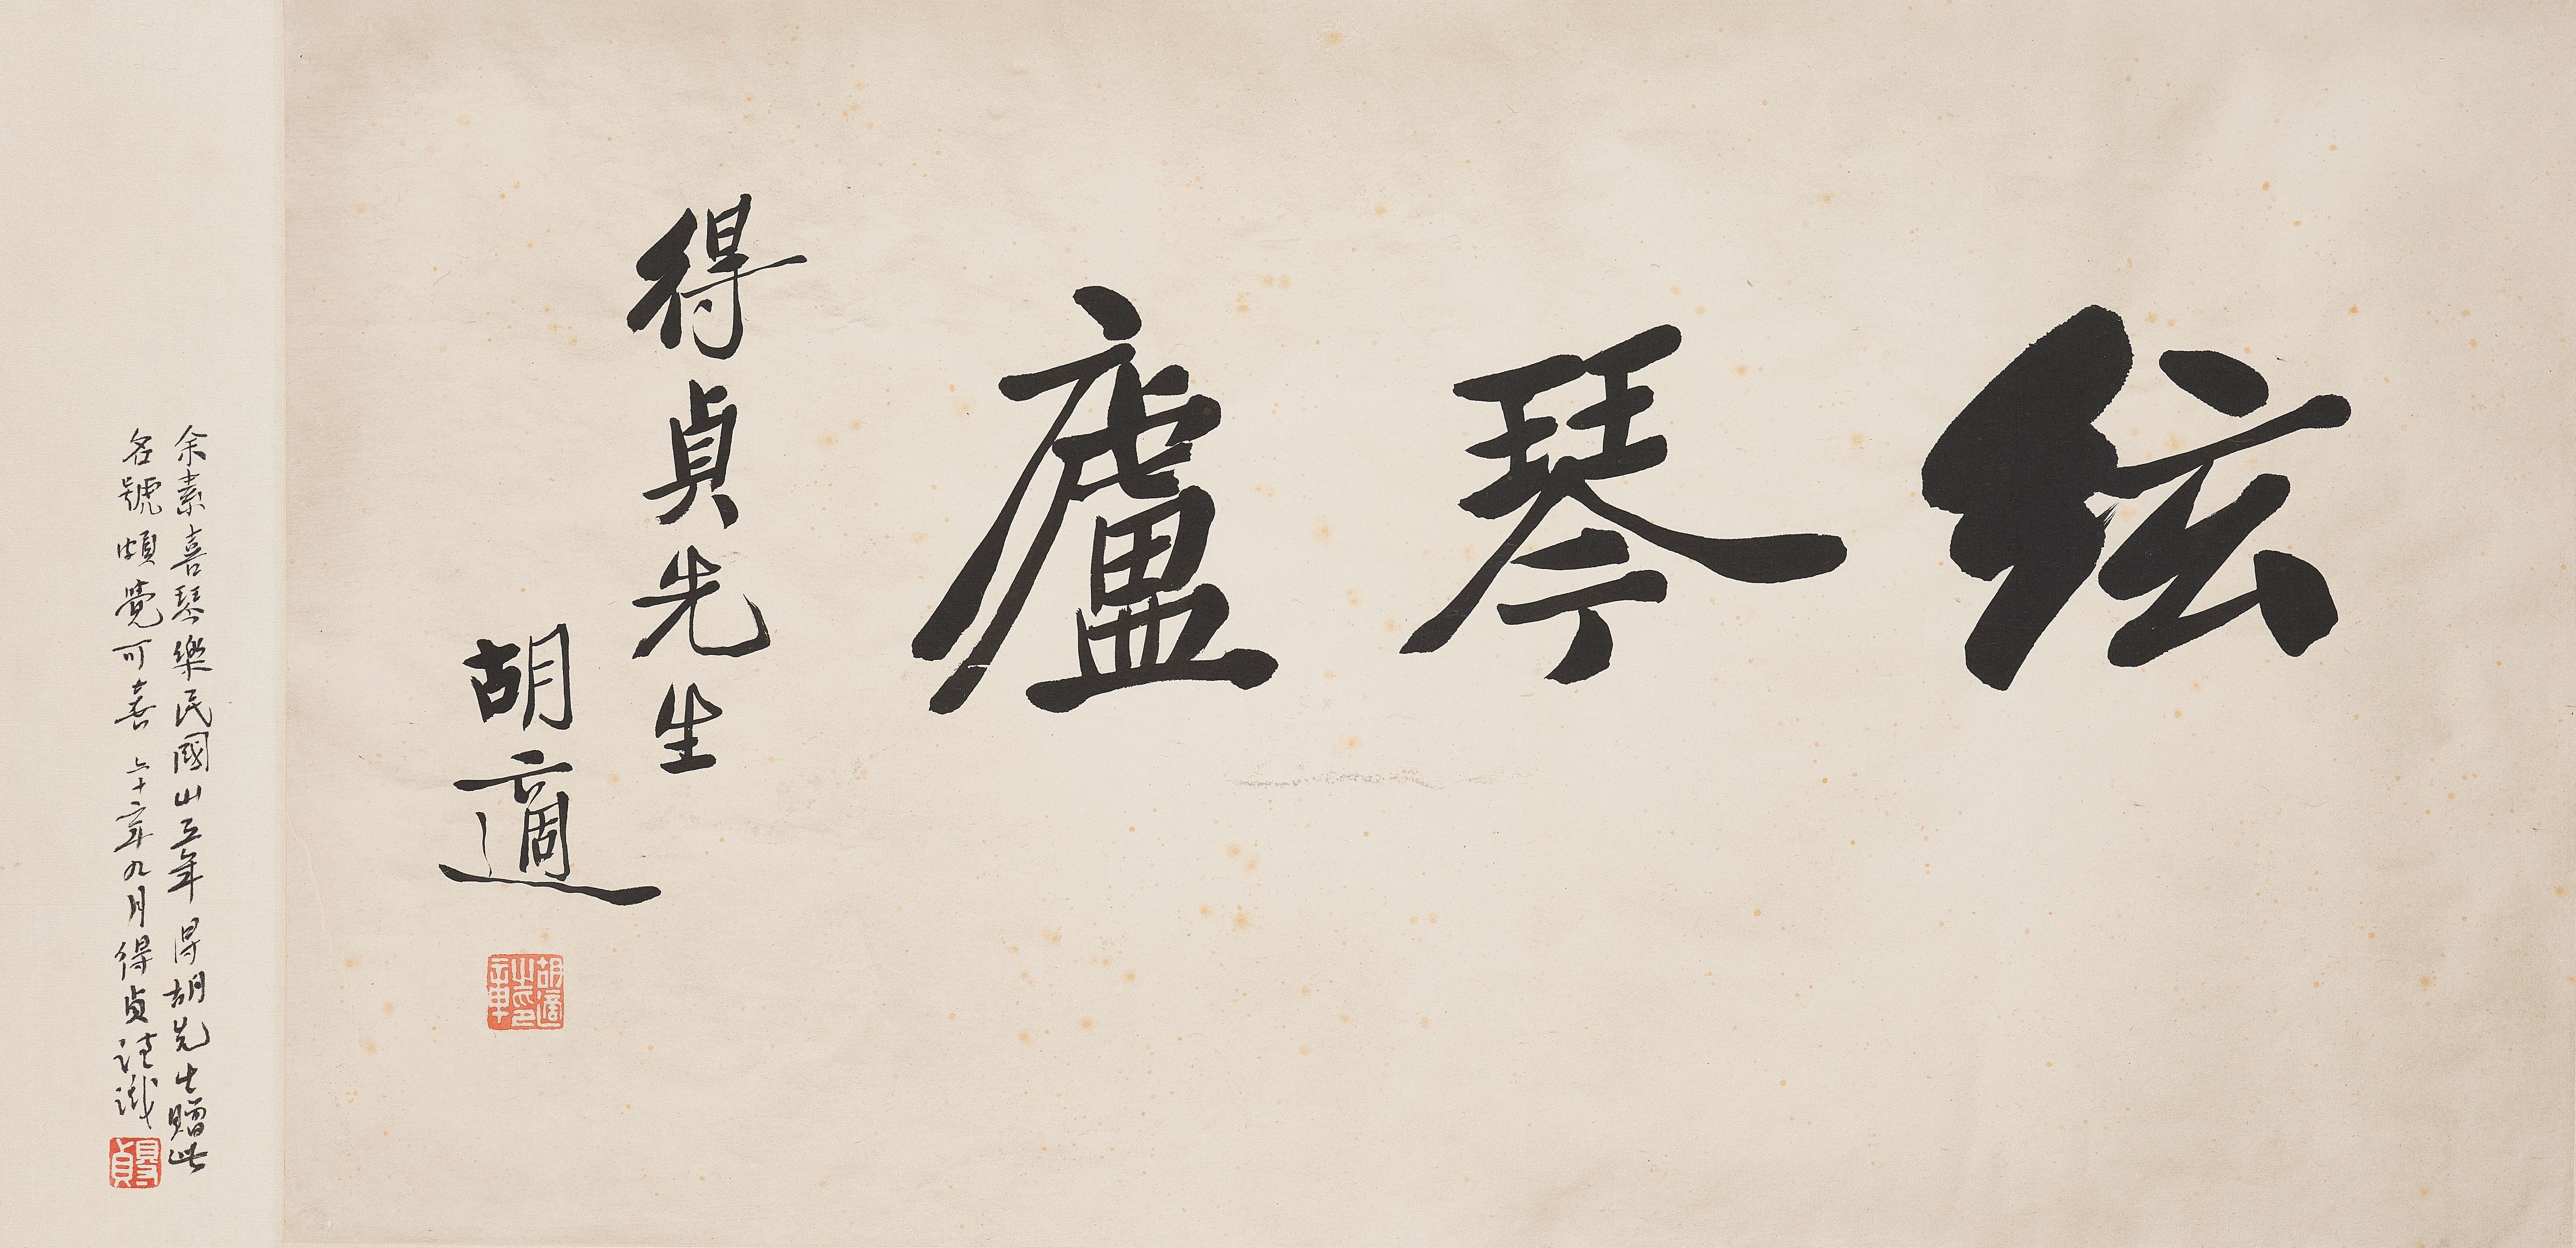 絃琴廬
得貞先生
胡適
胡適之印章
余素喜琴樂民國卅五年得胡先生贈此
名號頗覺可喜 六十六年九月得貞謹識
得貞